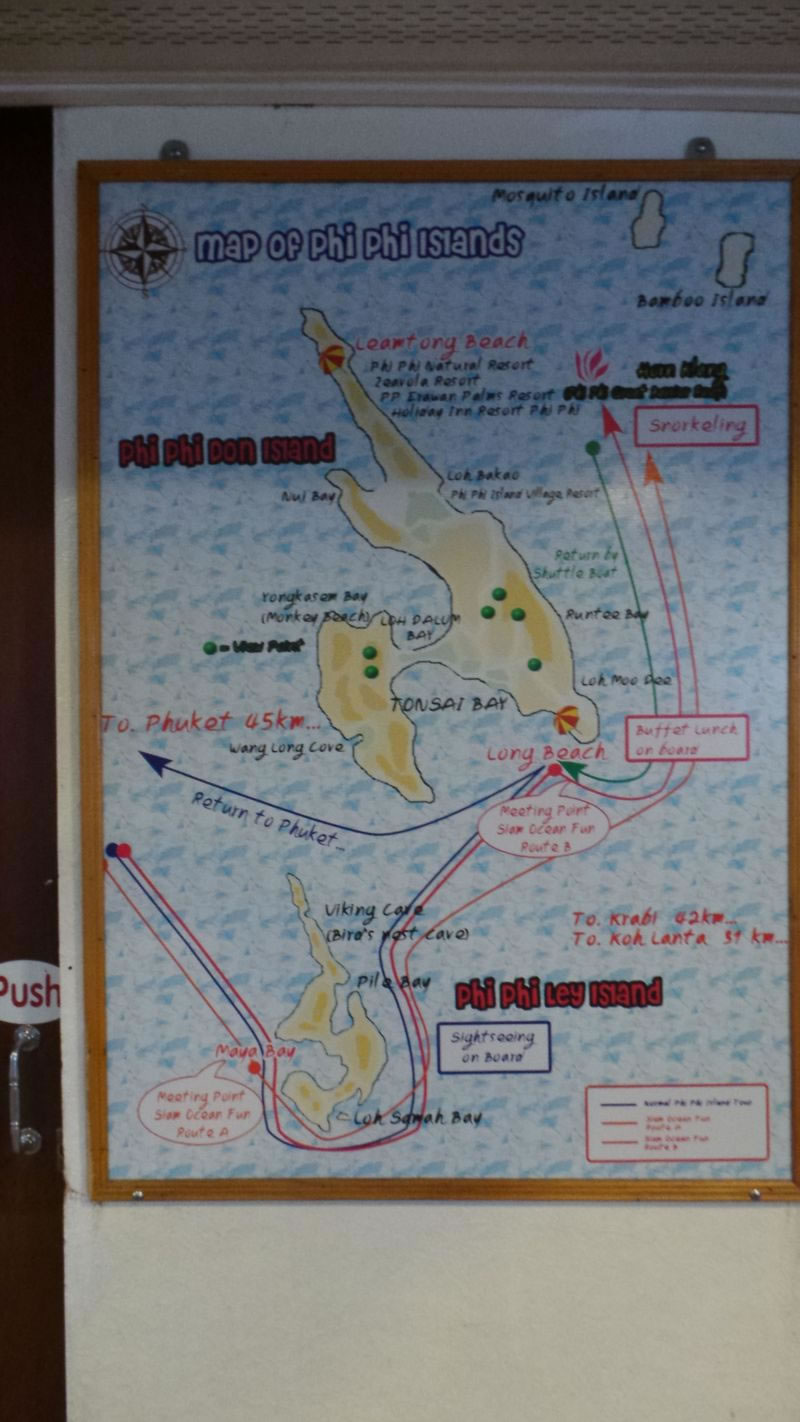 Mosquito Island
Map of Phi Phi Islands
Bamboo Island
Leamtong Beach
Phi Phi Natural Resort
Zeavola Resort
PP Erawan Palms Resort
Holiday Inn Resort Phi Phi
Snorkeling
Phi Phi Don Island
Loh Bakao
Nui Bay
Phi Phi Island Village Resort
Return by
Shuttle Boat
Yongkasem Bay
(Monkey Beach)
LOH DALUM
BAY
Runtee Bay
= View Point
Loh Moo Dee
TONSAI BAY
To. Phuket 45km...
Wang Long Cove
Long Beach
Buffet Lunch
on board
Return to Phuket...
Meeting Point
Siam Ocean Fun
Route B
Viking Cave
(Bird's nest cave)
To. Krabi 42km...
To. Koh Lanta 31 km...
Push
Pile Bay
Phi Phi Ley Island
Sightseeing
on Board
Maya Bay
Meeting Point
Siam Ocean Fun
Route A
Loh Samah Bay
Normal Phi Phi Island Tour
Siam Ocean Fun
Route A
Siam Ocean Fun
Route B